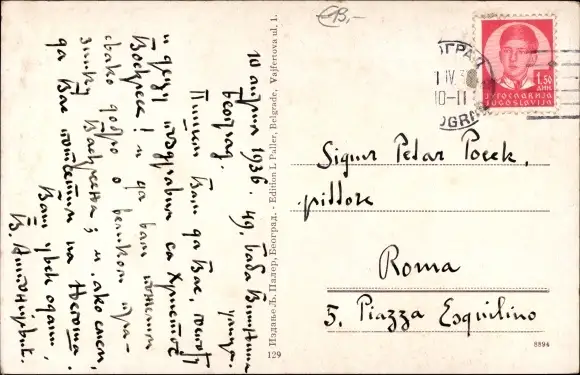 10 априла 1936. 49, Баба Вишњина
улица.
Београд.
Пишем Вам да Вас, госпођу
и децу поздравим са Христос
Воскресе! и да вам пожелим
свако добро о великом пра-
знику Васкрсења; и, ако смем,
да Вас потсетим на Његоша.
Ваш увек одани,
В.
Издање Љ. Палер, Београд. - Edition L Paller, Belgrade, Vajfertova ul. 1.
129
ЕОГРАД
IV 3
10-11
OGRA
1.50
ДИН.
ЈУГОСЛАВИЈА
JUGOSLAVIJA
Signor Petar Pocek,
pittore
Roma
5, Piazza Esquilino
8894